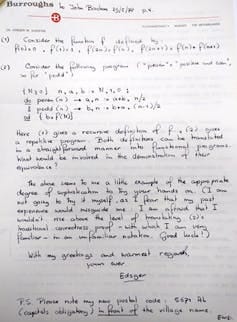 Burroughs to John Backus 29/5/78 p.4.
DR. EDSGER W. DIJKSTRA
(1) Consider the function f defined by:
f(0)=0, f(1)=1, f(2n)=f(n), f(2n+1)=f(n)+f(n+1)
(2) Consider the following program
{N≥0} n, a, b := N, 1, 0;
do peven (n) → a, n := a+b, n/2
▯ podd (n) → b, n := b+a, (n-1)/2
od {b=f(N)}
Here (1) gives a recursive definition of f, (2) gives
a repetitive program. Both definitions can be translated
in a straightforward manner into functional programs.
What would be involved in the demonstration of their
equivalence?
The above seems to me a little example of the appropriate
degree of sophistication to try your hands on. (I am
not going to try it myself, as I fear that my past
experience would misguide me: I am afraid that I
wouldn't rise above the level of translating (2)'s
traditional correctness proof - with which I am very
familiar - in an unfamiliar notation. Good luck!)
With my greetings and warmest regards,
yours ever
Edsger
P.S. Please note my new postal code: 5671 AL
(capitals obligatory) in front of the village name.